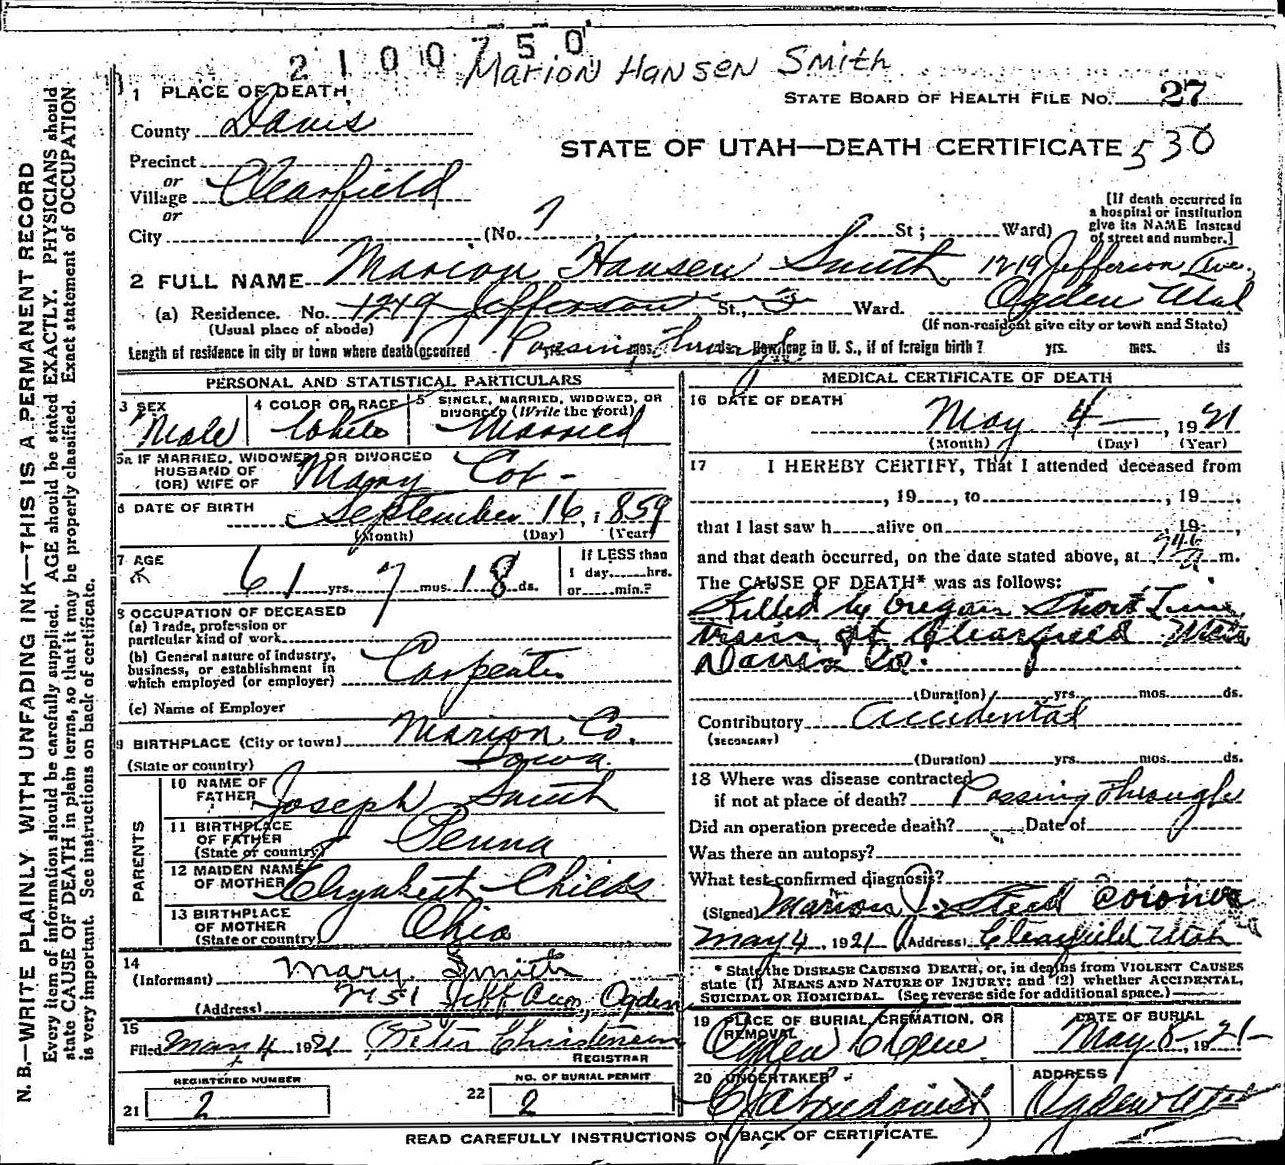 2100750
Marion Hansen Smith
1 PLACE OF DEATH,
STATE BOARD OF HEALTH FILE NO. 27
County Davis
STATE OF UTAH—DEATH CERTIFICATE 530
Precinct
or
Village Clearfield
or
City (No. St; Ward)
[If death occurred in
a hospital or institution
give its NAME instead
of street and number.]
2 FULL NAME Marion Hansen Smith 1219 Jefferson Ave,
(a) Residence. No. 1249 Jefferson St., 3 Ward. Ogden Utah
(Usual place of abode) (If non-resident give city or town and State)
Length of residence in city or town where death occurred Passing Through yrs. mos. ds. How long in U. S., if of foreign birth? yrs. mes. ds
PERSONAL AND STATISTICAL PARTICULARS
3 SEX Male
4 COLOR OR RACE White
5 SINGLE, MARRIED, WIDOWED, OR DIVORCED (Write the word) Married
5a IF MARRIED, WIDOWED, OR DIVORCED
HUSBAND OF
(OR) WIFE OF Mary Cox
6 DATE OF BIRTH September 16, 1859
(Month) (Day) (Year)
7 AGE 61 yrs. 7 mos. 18 ds.
If LESS than
1 day hrs.
or min.?
8 OCCUPATION OF DECEASED
(a) Trade, profession or
particular kind of work
(b) General nature of industry,
business, or establishment in
which employed (or employer) Carpenter
(c) Name of Employer
9 BIRTHPLACE (City or town) Marion Co.
(State or country) Iowa.
PARENTS
10 NAME OF
FATHER Joseph Smith
11 BIRTHPLACE
OF FATHER
(State or country) Penna
12 MAIDEN NAME
OF MOTHER Elizabeth Childs
13 BIRTHPLACE
OF MOTHER
(State or country) Ohio
14
(Informant) Mary Smith
(Address) Jeff Ave, Ogden
15
Filed May 4 1921 Peter Christensen
REGISTRAR
REGISTERED NUMBER
21 2
NO. OF BURIAL PERMIT
22 2
MEDICAL CERTIFICATE OF DEATH
16 DATE OF DEATH
May 4 , 1921
(Month) (Day) (Year)
17 I HEREBY CERTIFY, That I attended deceased from
, 19 , to , 19 ,
that I last saw h alive on , 19 ,
and that death occurred, on the date stated above, at m.
The CAUSE OF DEATH* was as follows:
Killed by Oregon Short Line
train at Clearfield Utah
Davis Co.
(Duration) yrs. mos. ds.
Contributory Accidental
(SECONDARY)
(Duration) yrs. mos. ds.
18 Where was disease contracted
if not at place of death? Passing Through
Did an operation precede death? Date of
Was there an autopsy?
What test confirmed diagnosis?
(Signed) Marion J. Steed Coroner
May 4, 1921 (Address) Clearfield Utah
* State the DISEASE CAUSING DEATH, or, in deaths from VIOLENT CAUSES
state (1) MEANS AND NATURE OF INJURY; and (2) whether ACCIDENTAL,
SUICIDAL OR HOMICIDAL. (See reverse side for additional space.)
19 PLACE OF BURIAL, CREMATION, OR
REMOVAL
Ogden
DATE OF BURIAL
May 8, 1921
20 UNDERTAKER
ADDRESS
Ogden Utah
READ CAREFULLY INSTRUCTIONS ON BACK OF CERTIFICATE.
N. B.—WRITE PLAINLY WITH UNFADING INK—THIS IS A PERMANENT RECORD
Every item of information should be carefully supplied. AGE should be stated EXACTLY. PHYSICIANS should
state CAUSE OF DEATH in plain terms, so that it may be properly classified. Exact statement of OCCUPATION
is very important. See instructions on back of certificate.